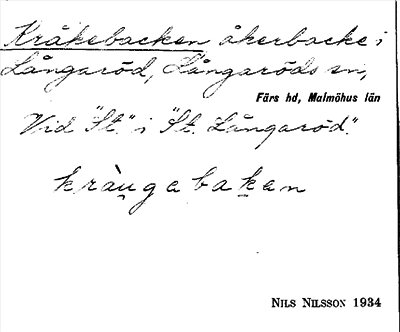 Kråkebacken åkerbacke i
Långaröd, Långaröds sn,
Färs hd, Malmöhus län
Vid "St." i "St. Långaröd".
kràu̯gebaken
NILS NILSSON 1934